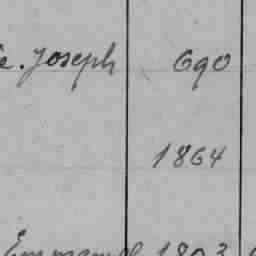 e. Joseph 690
1864
Emmanuel 1803